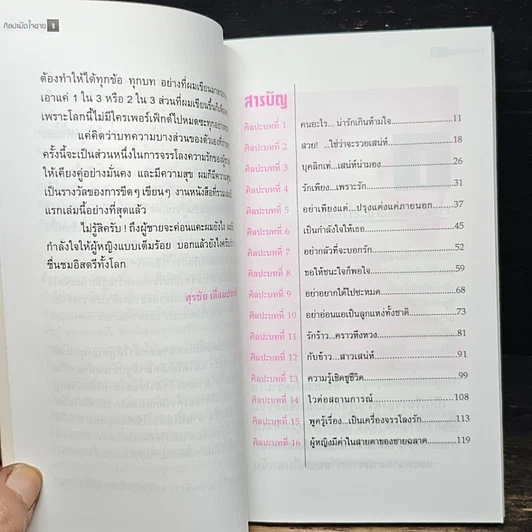 ศิลปะมัดใจชาย
ต้องทำให้ได้ทุกข้อ ทุกบท อย่างที่ผมเขียน
เอาแค่ 1 ใน 3 หรือ 2 ใน 3 ส่วนที่ผมเขียนขึ้น
เพราะโลกนี้ไม่มีใครเพอร์เฟ็กต์ไปหมดซะทุกอย่าง
แค่คิดว่าบทความบางส่วนของตัวเอง
ครั้งนี้จะเป็นส่วนหนึ่งในการจรรโลงความรักของ
ให้เคียงคู่อย่างมั่นคง และมีความสุข ผมก็มีความสุข
เป็นรางวัลของการขีดๆ เขียนๆ งานหนังสือที่
แรกเล่มนี้อย่างที่สุดแล้ว
ไม่รู้สิครับ! ถึงผู้ชายจะค่อนแคะผมยังไง
กำลังใจให้ผู้หญิงแบบเต็มร้อย บอกแล้วยังไงครับ
ชื่นชมอิสตรีทั้งโลก
สุรชัย
สารบัญ
ศิลปะบทที่ 1 คนอะไร... น่ารักเกินห้ามใจ 11
ศิลปะบทที่ 2 สวย! ...ใช่ว่าจะรวยเสน่ห์ 18
ศิลปะบทที่ 3 บุคลิกเท่...เสน่ห์น่ามอง 26
ศิลปะบทที่ 4 รักเพียง...เพราะรัก 31
ศิลปะบทที่ 5 อย่าเพียงแต่...ปรุงแต่งแค่ภายนอก 37
ศิลปะบทที่ 6 เป็นกำลังใจให้เธอ 45
ศิลปะบทที่ 7 อย่ากลัวที่จะบอกรัก 52
ศิลปะบทที่ 8 ขอให้ชนะใจก็พอใจ 59
ศิลปะบทที่ 9 อย่าอยากได้ไปซะหมด 68
ศิลปะบทที่ 10 อย่าอ่อนแอเป็นลูกแหง่ทั้งชาติ 73
ศิลปะบทที่ 11 รักร้าว...คราวหึงหวง 81
ศิลปะบทที่ 12 กับข้าว...สาวเสน่ห์ 91
ศิลปะบทที่ 13 ความรู้เชิดชูชีวิต 99
ศิลปะบทที่ 14 ไวต่อสถานการณ์ 108
ศิลปะบทที่ 15 พูดรู้เรื่อง...เป็นเครื่องจรรโลงรัก 113
ศิลปะบทที่ 16 ผู้หญิงมีค่าในสายตาของชายฉลาด 119